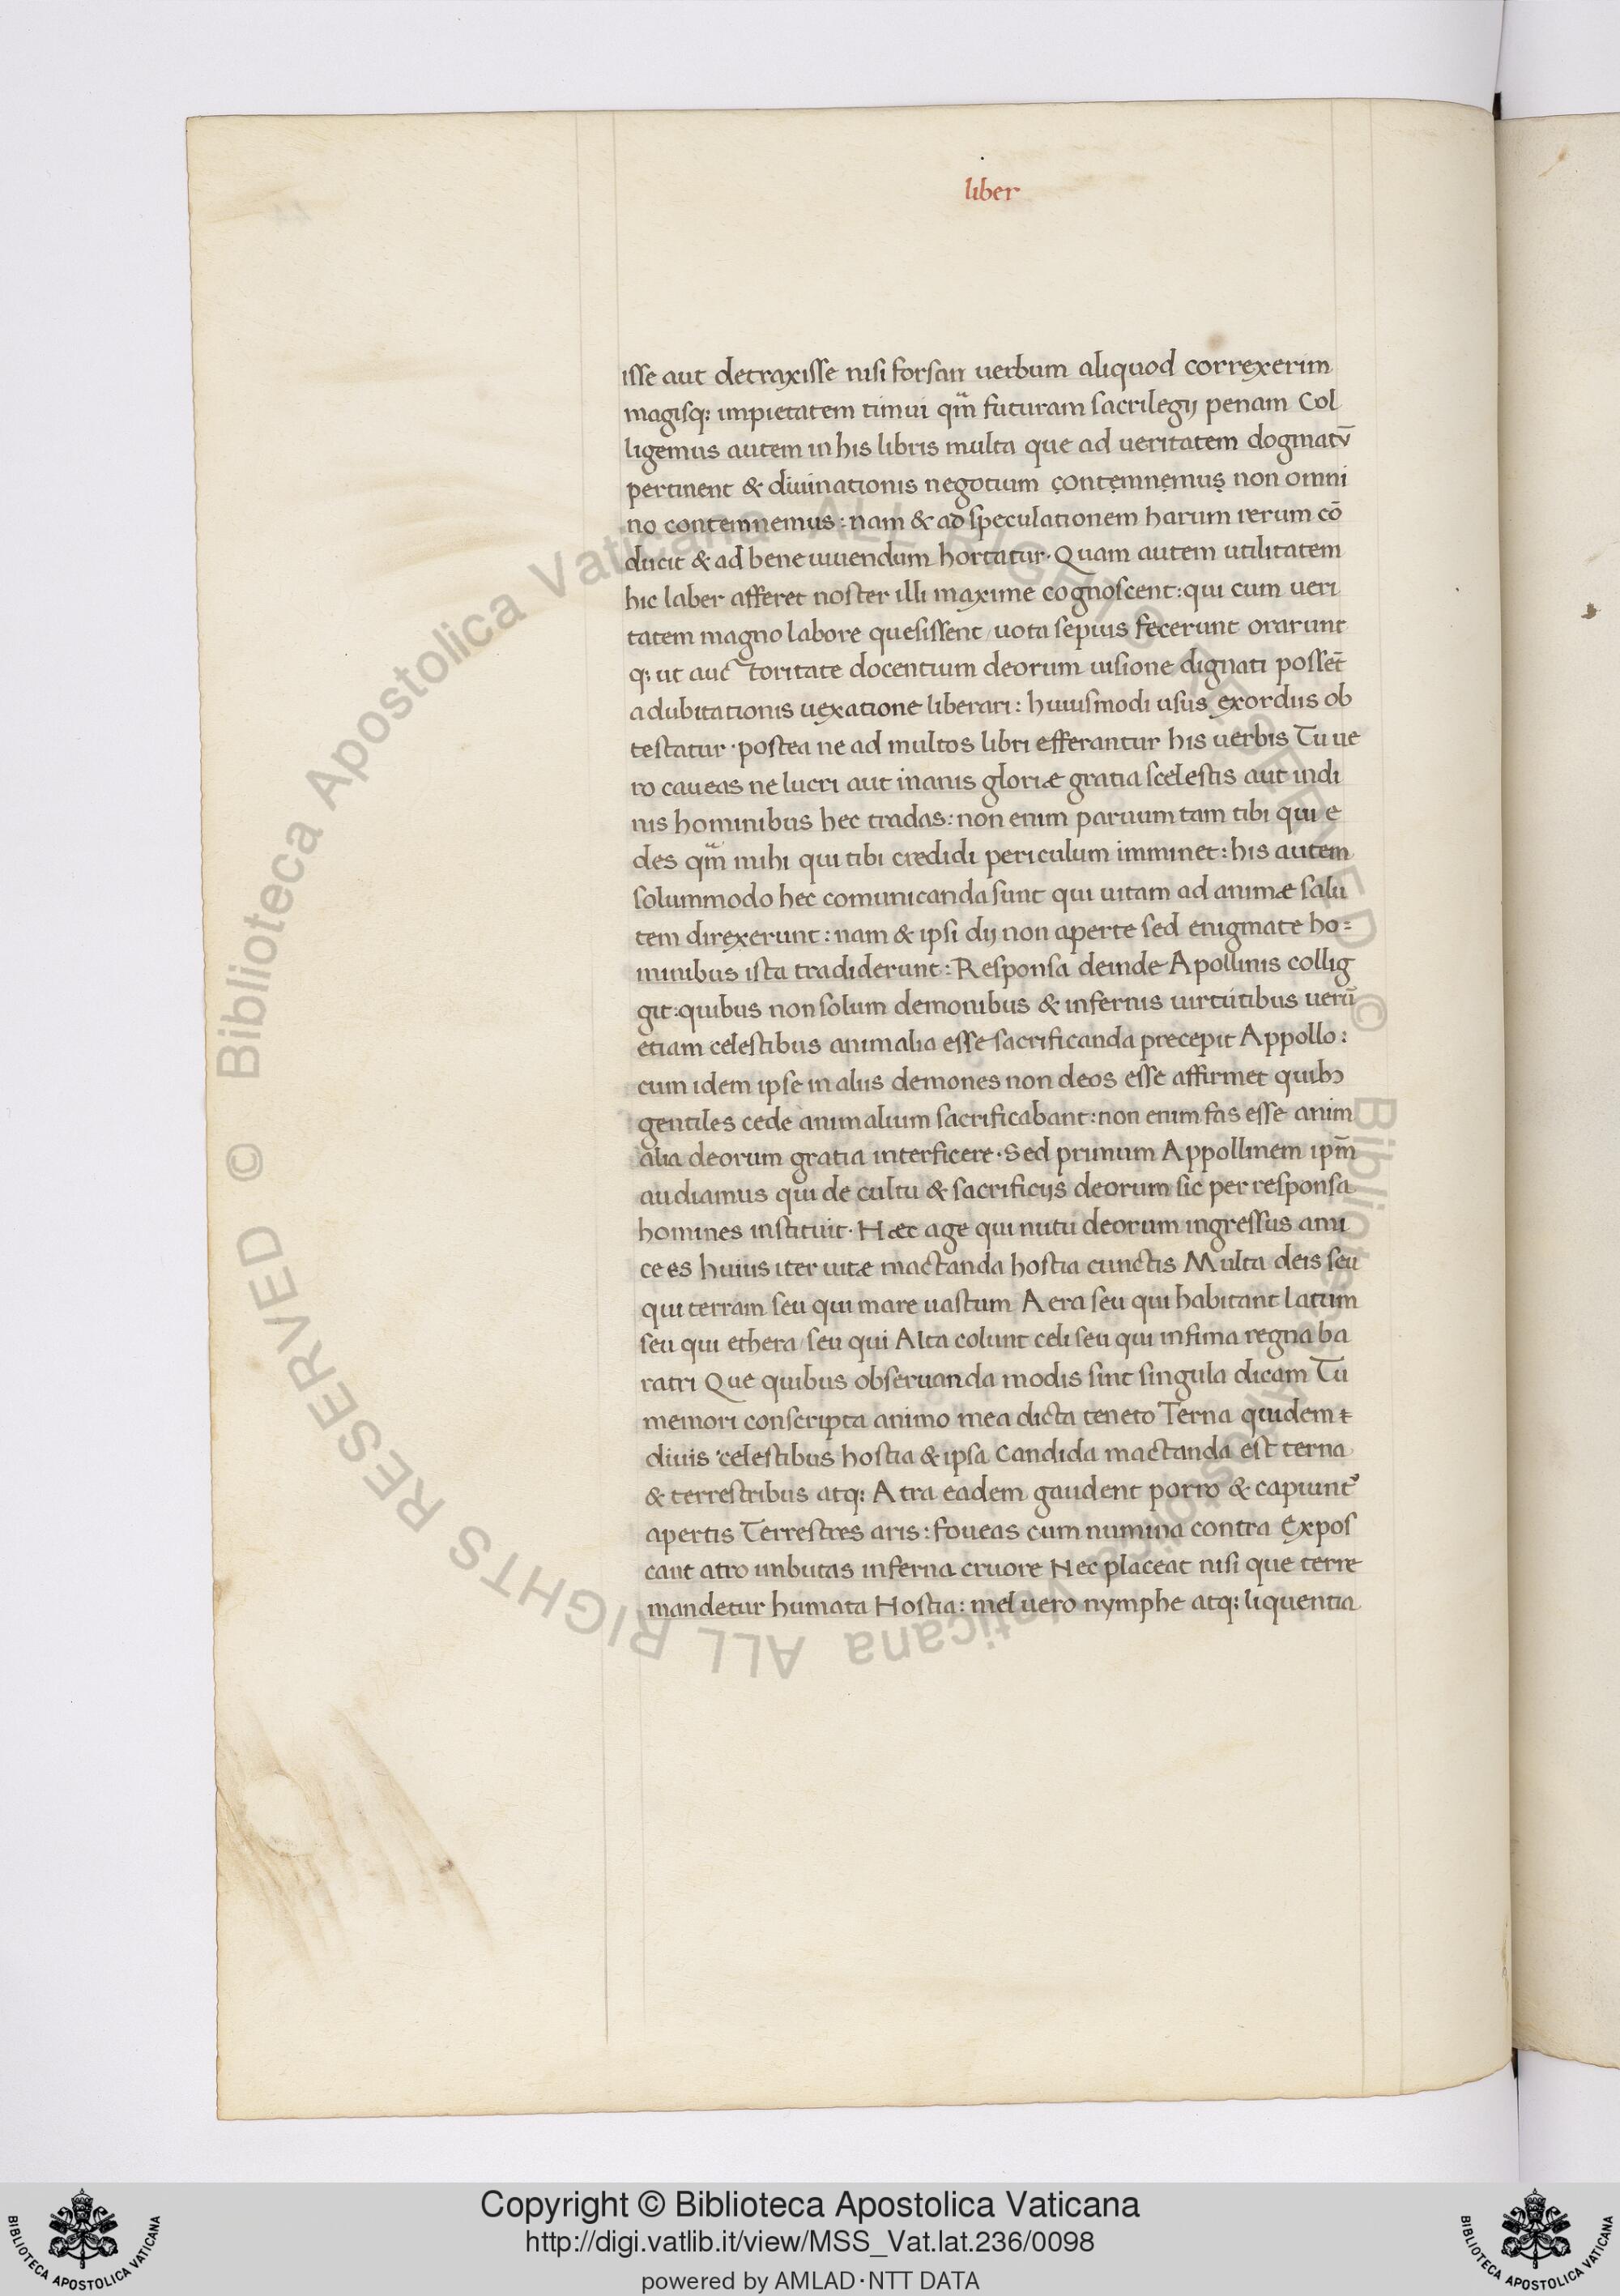 liber
isse aut detraxisse nisi forsan uerbum aliquod correxerim
magisq; impietatem timui qm̃ futuram sacrilegij penam Col
ligemus autem in his libris multa que ad ueritatem dogmatv̄
pertinent & diuinationis negotium c̣ontẹmnẹmuṣ non omni
no contemnemus : nam & ad speculationem harum rerum cō
ducit & ad bene uiuendum hortatur · Quam autem utilitatem
hic laber afferet noster illi maxime cognoscent : qui cum ueri
tatem magno labore quesissent / uota sepius fecerunt orarunt
q; ut auctoritate docentium deorum uisione dignati posset̄
a dubitationis uexatione liberari : huiusmodi usus exordiis ob
testatur · postea ne ad multos libri efferantur his uerbis Tu ue
ro caueas ne lucri aut inanis gloriæ gratia scelestis aut indi
nis hominibus hec tradas : non enim paruum tam tibi qui e
des qm̃ mihi qui tibi credidi periculum imminet : his autem
solummodo hec comunicanda sunt qui uitam ad animæ salu
tem direxerunt : nam & ipsi dij non aperte sed enigmate ho=
minibus ista tradiderunt : Responsa deinde Apollinis collig
git : quibus non solum demonibus & infernis uirtutibus uerū
etiam celestibus animalia esse sacrificanda precepit Appollo :
cum idem ipse in aliis demones non deos esse affirmet quibꝫ
gentiles cede animalium sacrificabant : non enim fas esse anim
alia deorum gratia interficere · Sed primum Appollinem ipm̄
audiamus qui de cultu & sacrificijs deorum sic per responsa
homines instituit · Hæc age qui nutu deorum ingressus ami
ce es huius iter uitæ mactanda hostia cunctis Multa deis seu
qui terram seu qui mare uastum Aera seu qui habitant latum
seu qui ethera / seu qui Alta colunt celi seu qui infima regna ba
ratri Que quibus obseruanda modis sint singula dicam Tu
memori conscripta animo mea dicta teneto Terna quidem
diuis celestibus hostia & ipsa Candida mactanda est terna
& terrestribus atq; Atra eadem gaudent porro & capiunt᾽
apertis Terrestres aris : foueas cum numina contra Expos
cant atro imbutas inferna cruore Nec placeat nisi que terre
mandetur humata Hostia : mel uero nymphe atq; liquentia
© Biblioteca Apostolica Vaticana ALL RIGHTS RESERVED
© Biblioteca Apostolica Vaticana ALL RIGHTS RESERVED
Copyright © Biblioteca Apostolica Vaticana
http://digi.vatlib.it/view/MSS_Vat.lat.236/0098
powered by AMLAD·NTT DATA
BIBLIOTECA APOSTOLICA VATICANA
BIBLIOTECA APOSTOLICA VATICANA